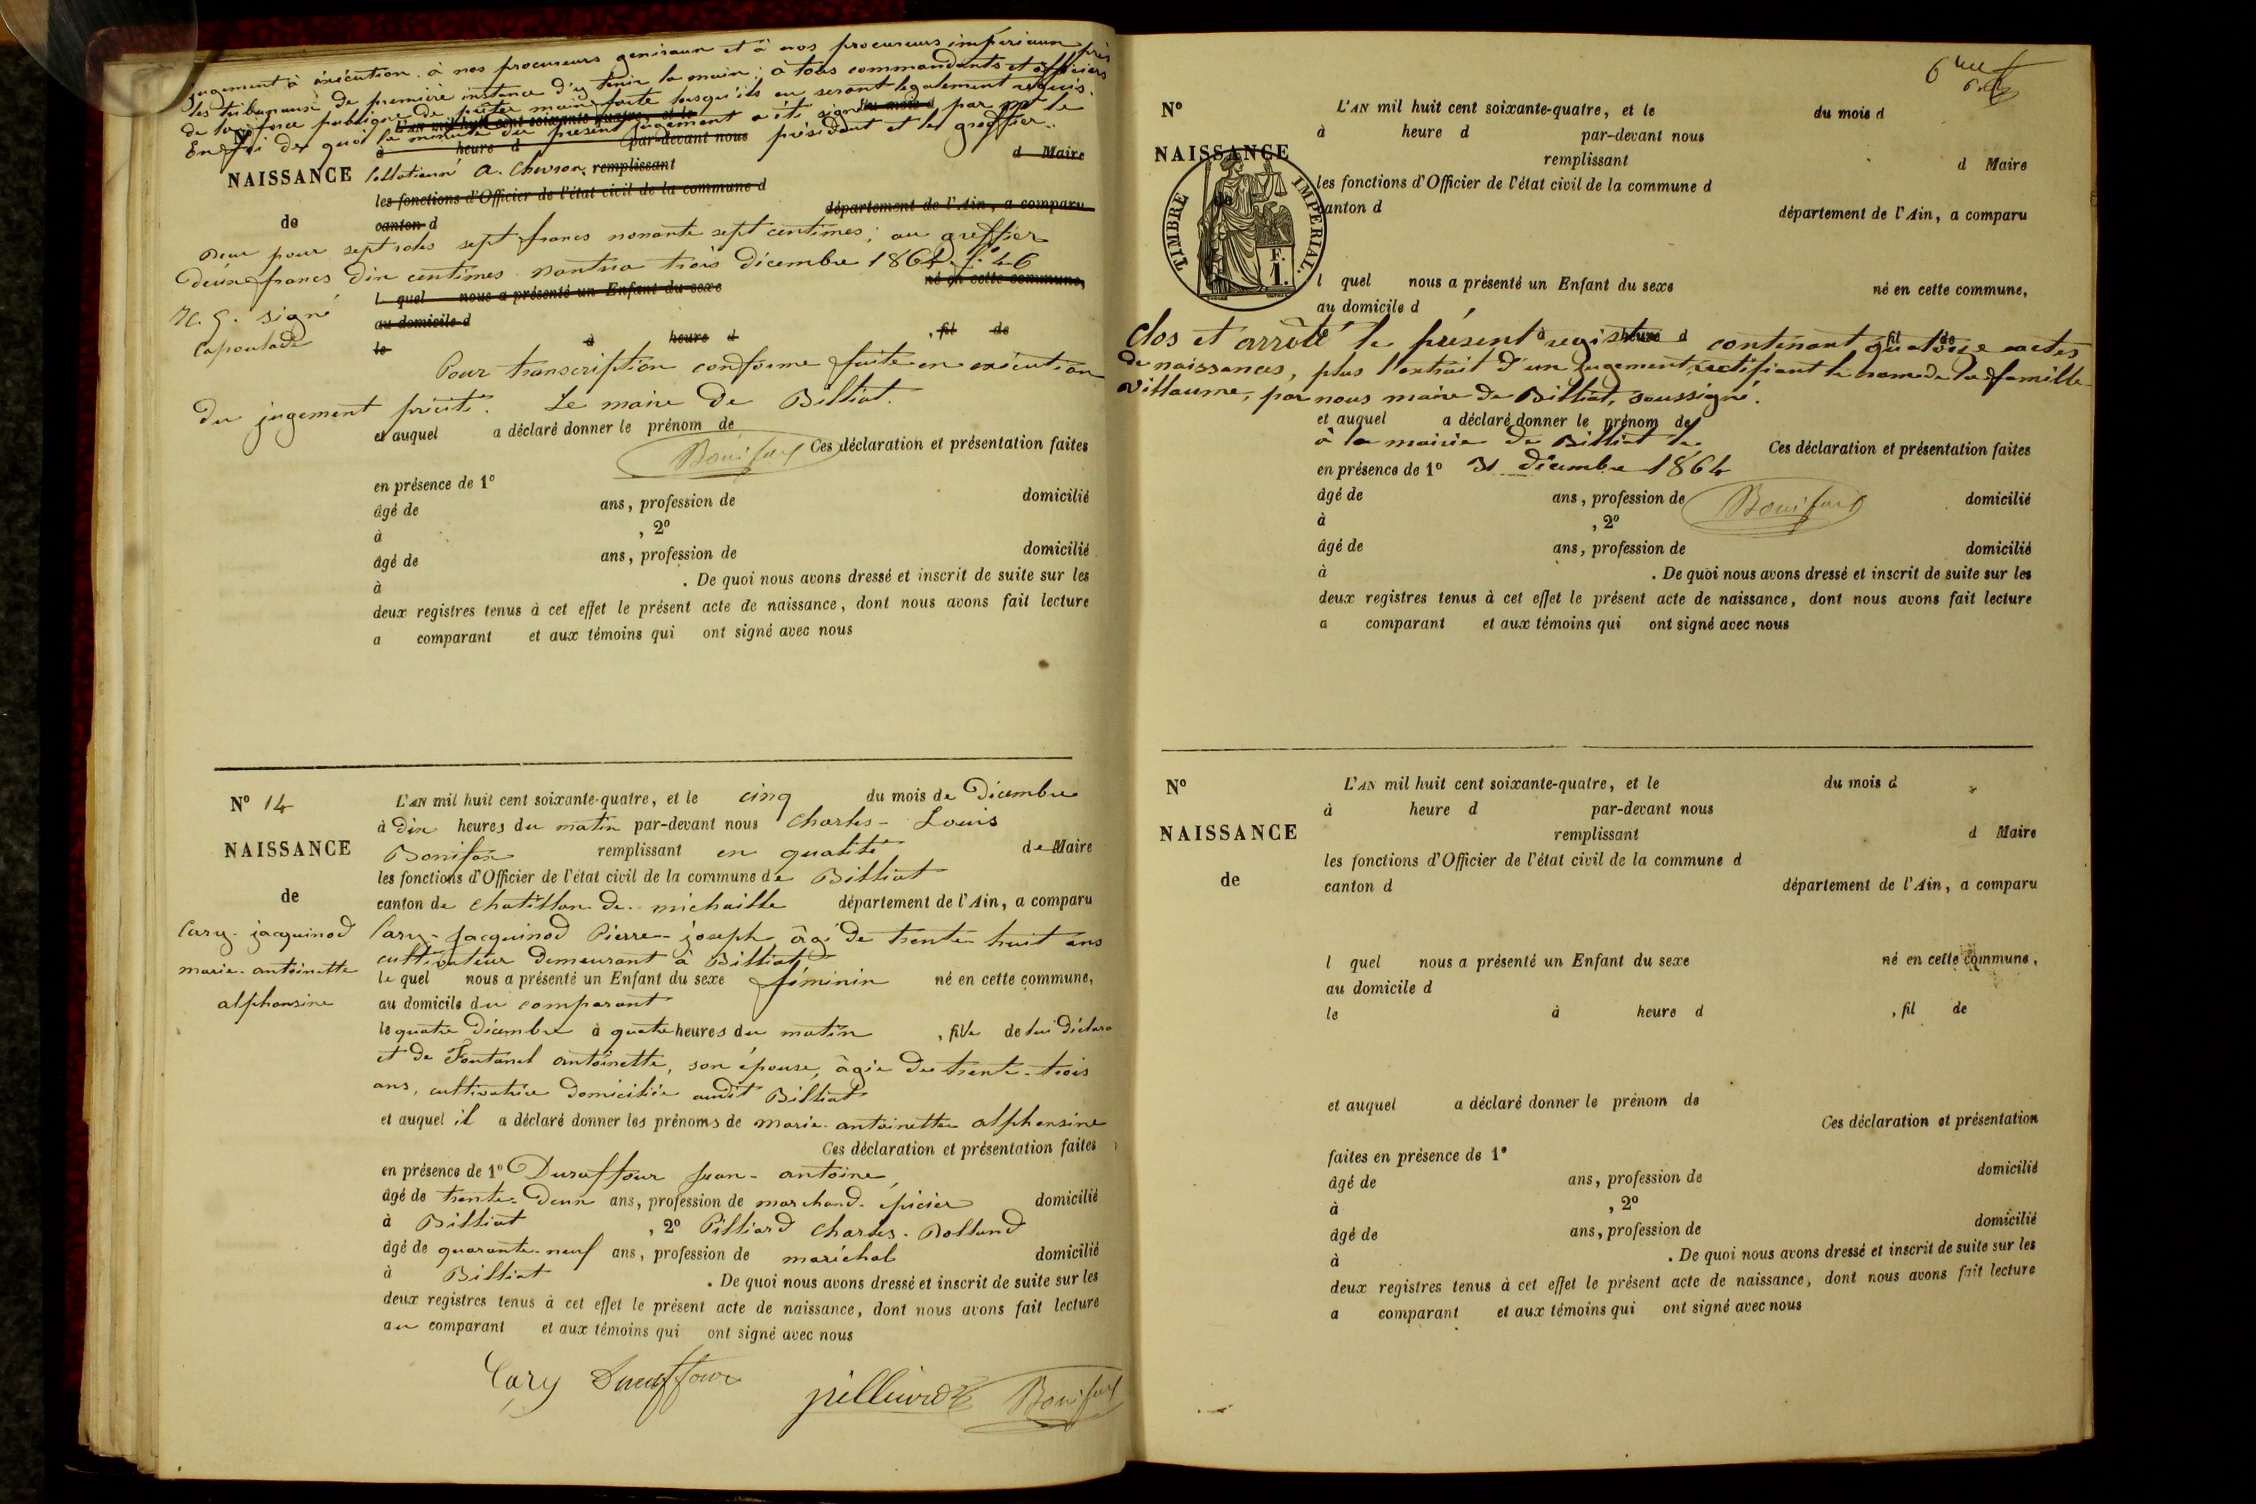 jugement à exécution. à nos procureurs généraux et à nos procureurs impériaux près
les tribunaux de première instance d'y tenir la main; à tous commandants et officiers
de la force publique de prêter main forte lorsqu'ils en seront légalement requis.
En foi de quoi la minute du présent jugement a été signé par le
L'AN mil huit cent soixante-quatre, et le du mois d
à heure d par-devant nous président et le greffier.
NAISSANCE Collationné A. Chevron. remplissant d Maire
les fonctions d'Officier de l'état civil de la commune d
de canton d département de l'Ain, a comparu
pour sept rôles sept francs nonante sept centimes; au greffier
deux francs dix centimes Nantua trois décembre 1864 f. 46
l quel nous a présenté un Enfant du sexe né en cette commune,
signé au domicile d
Capoulade le à heure d , fil de
Pour transcription conforme faite en exécution
du jugement précité. Le maire de Billiat.
et auquel a déclaré donner le prénom de
Bonifax Ces déclaration et présentation faites
en présence de 1º
âgé de ans, profession de domicilié
à , 2º
âgé de ans, profession de domicilié
à . De quoi nous avons dressé et inscrit de suite sur les
deux registres tenus à cet effet le présent acte de naissance, dont nous avons fait lecture
a comparant et aux témoins qui ont signé avec nous
Nº 14 L'AN mil huit cent soixante-quatre, et le cinq du mois de Décembre
à dix heures du matin par-devant nous Charles-Louis
NAISSANCE Bonifax remplissant en qualité de Maire
les fonctions d'Officier de l'état civil de la commune de Billiat
de canton de Chatillon de michaille département de l'Ain, a comparu
Cary-jacquinod Cary-Jacquinod Pierre-joseph âgé de trente-huit ans
cultivateur demeurant à Billiat
marie-antoinette le quel nous a présenté un Enfant du sexe féminin né en cette commune,
alphonsine au domicile du comparant
le quatre Décembre à quatre heures du matin , fille de lui déclara
et de Fontanel antoinette, son épouse, âgée de trente-trois
ans, cultivatrice domiciliée audit Billiat
et auquel il a déclaré donner les prénoms de marie-antoinette alphonsine
Ces déclaration et présentation faites
en présence de 1º Duraffour Jean-antoine,
âgé de trente-deux ans, profession de marchand-épicier domicilié
à Billiat , 2º Pilliard Charles-Rolland
âgé de quarante-neuf ans, profession de maréchal domicilié
à Billiat . De quoi nous avons dressé et inscrit de suite sur les
deux registres tenus à cet effet le présent acte de naissance, dont nous avons fait lecture
au comparant et aux témoins qui ont signé avec nous
Cary Duraffour
pilliard Bonifax
6
Nº L'AN mil huit cent soixante-quatre, et le du mois d
à heure d par-devant nous
NAISSANCE remplissant d Maire
les fonctions d'Officier de l'état civil de la commune d
de canton d département de l'Ain, a comparu
TIMBRE IMPÉRIAL.
1 F.
l quel nous a présenté un Enfant du sexe né en cette commune,
au domicile d
le à heure d fil de
Clos et arrêté le présent registre contenant quatorze actes
de naissances, plus l'extrait d'un jugement rectifiant le nom de la famille
Villaume, par nous maire de Billiat, soussigné.
et auquel a déclaré donner le prénom de
à la mairie de Billiat le
Ces déclaration et présentation faites
en présence de 1º 31 décembre 1864
âgé de ans, profession de Bonifax domicilié
à , 2º
âgé de ans, profession de domicilié
à . De quoi nous avons dressé et inscrit de suite sur les
deux registres tenus à cet effet le présent acte de naissance, dont nous avons fait lecture
a comparant et aux témoins qui ont signé avec nous
Nº L'AN mil huit cent soixante-quatre, et le du mois d
à heure d par-devant nous
NAISSANCE remplissant d Maire
les fonctions d'Officier de l'état civil de la commune d
de canton d département de l'Ain, a comparu
l quel nous a présenté un Enfant du sexe né en cette commune,
au domicile d
le à heure d , fil de
et auquel a déclaré donner le prénom de
Ces déclaration et présentation
faites en présence de 1º
âgé de ans, profession de domicilié
à , 2º
âgé de ans, profession de domicilié
à . De quoi nous avons dressé et inscrit de suite sur les
deux registres tenus à cet effet le présent acte de naissance, dont nous avons fait lecture
a comparant et aux témoins qui ont signé avec nous